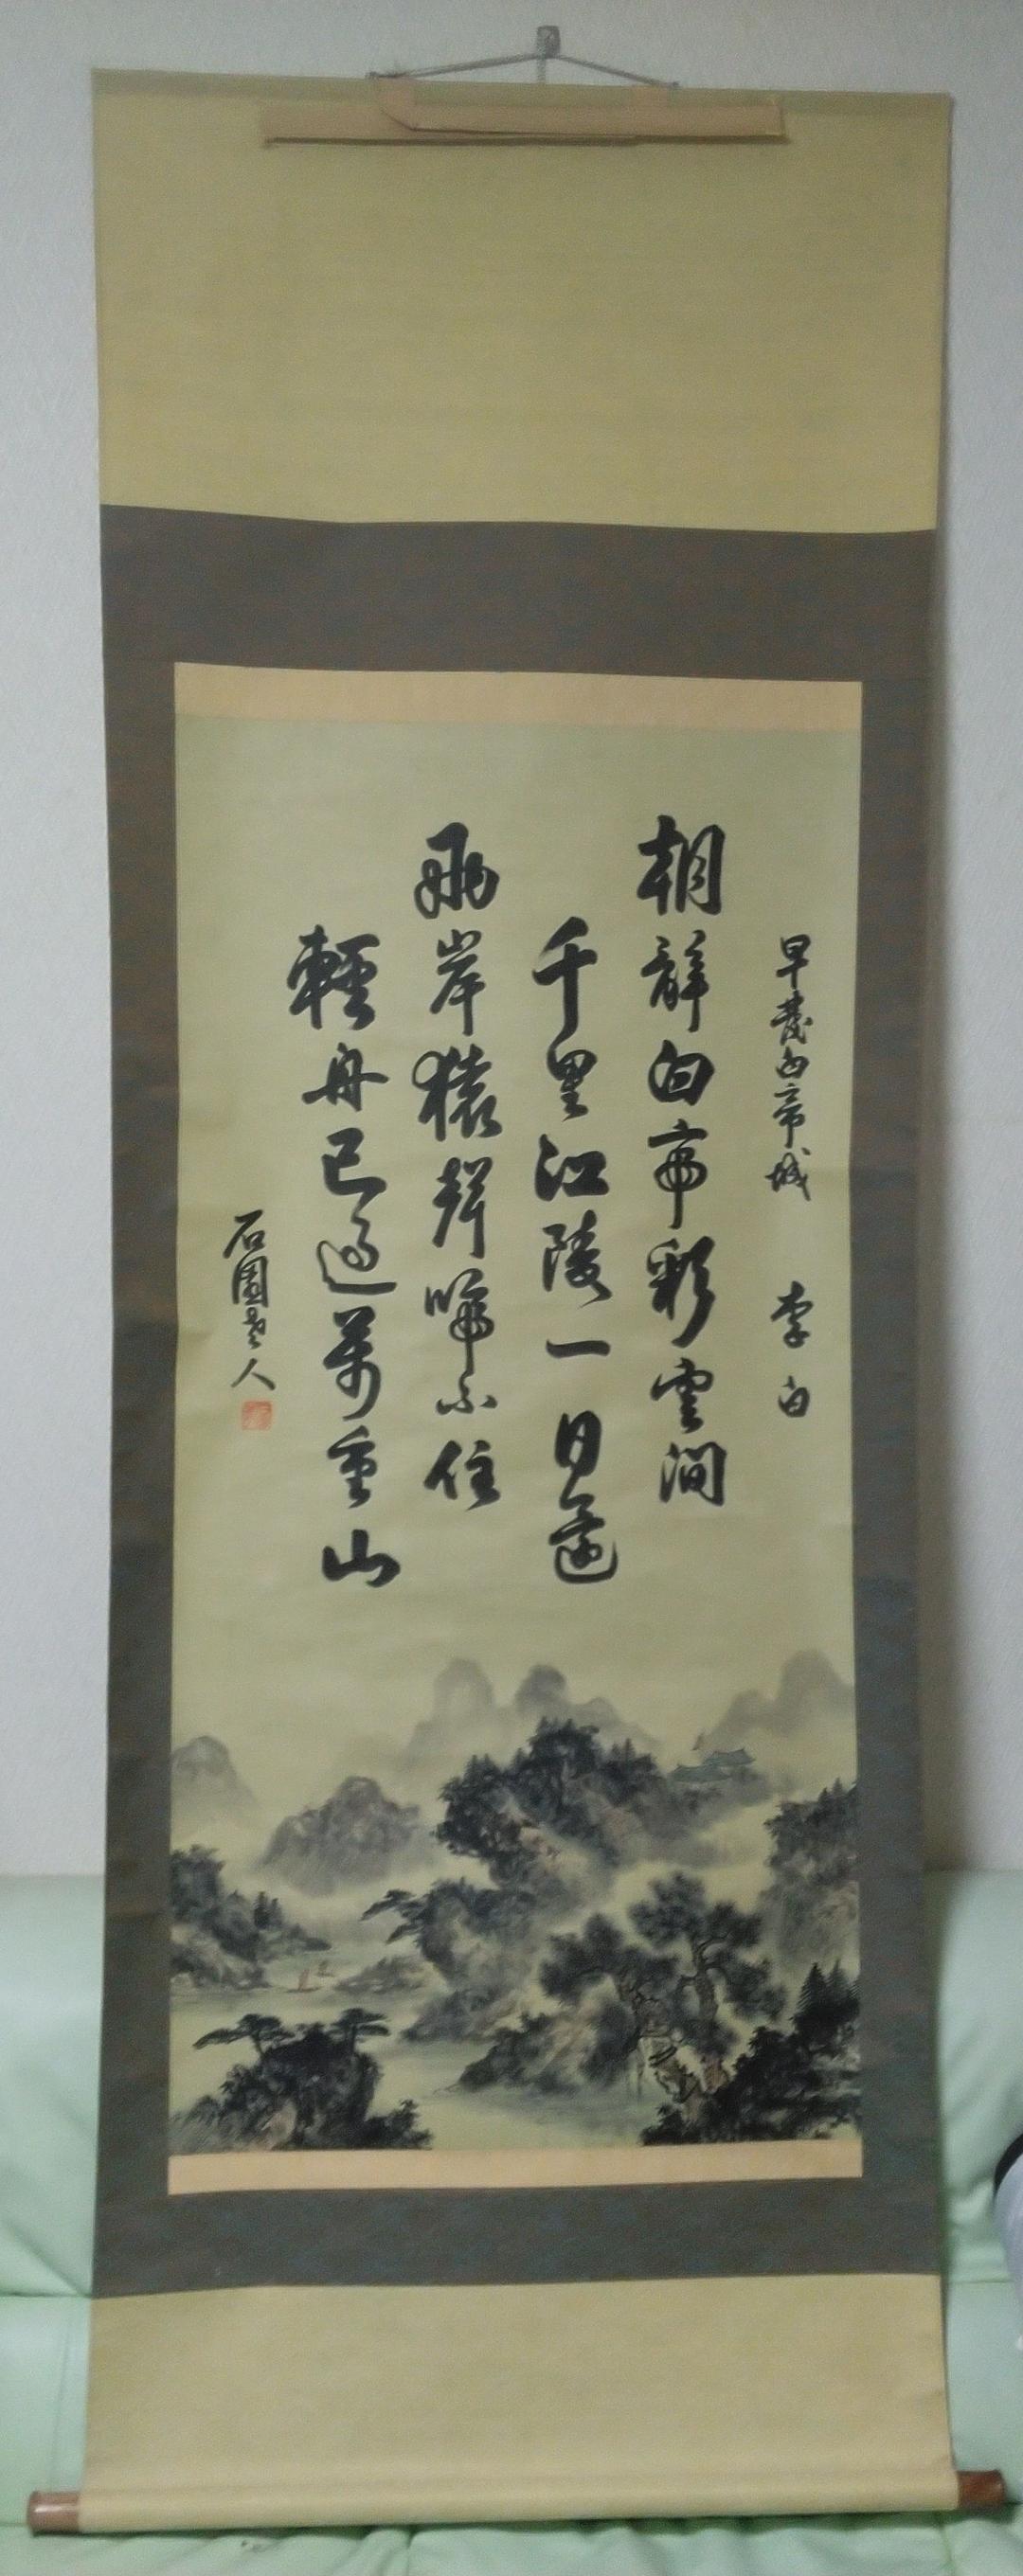 早發白帝城 李白
朝辭白帝彩雲間
千里江陵一日還
兩岸猿聲啼不住
輕舟已過萬重山
石園老人